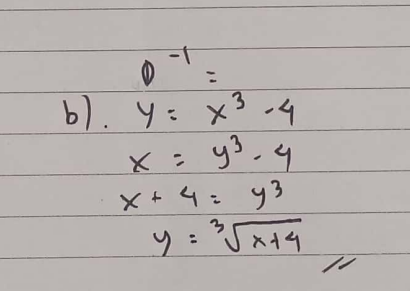 0⁻¹ =
b). y = x³ - 4
x = y³ - 4
x + 4 = y³
y = ³√(x+4)